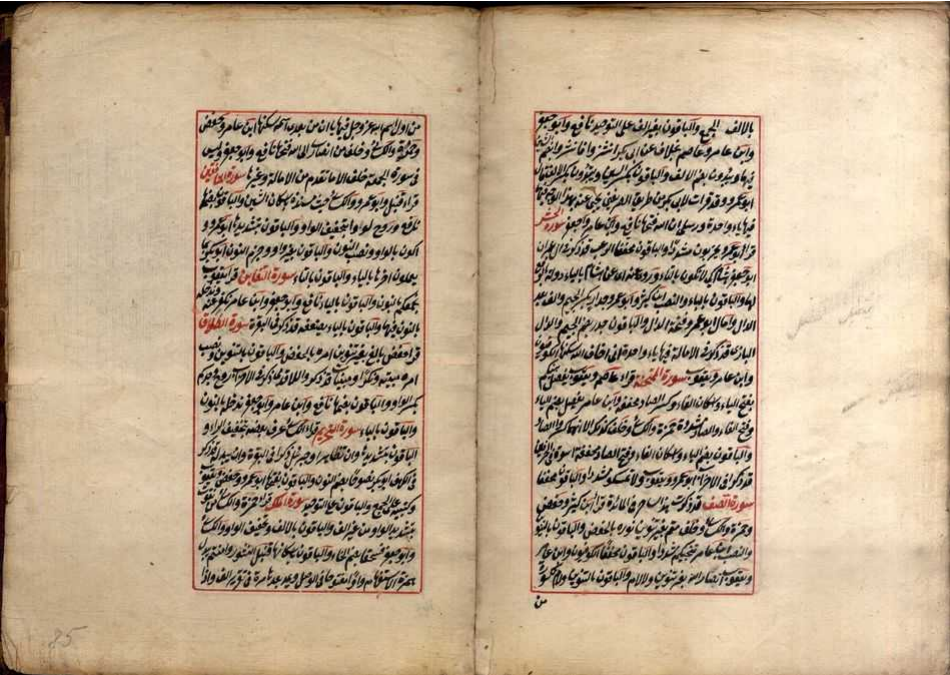 بالالف الجمع والباقون بغير الف على التوحيد نافع وابو جعفر
وابن عامر وعاصم بخلاف عن ابى بكر انشزوا فانشزوا بضم الشين
فيهما ويبتدون بضم الالف والباقون بكسر الشين ويبتدون بكسر الالف
ابو عمرو وقد قرات لابى بكر من طريق الصريفينى عن يحيى عنه بهذا الوجه
فيها ياء واحدة ورسلى ان الله فتحها نافع وابن عامر وابو جعفر سورة الحشر
قرا ابو عمرو يخربون مشددا والباقون مخففا الرعب قد ذكر فى آل عمران
ابو جعفر كى لا تكون بالتاء دولة بالرفع
والباقون بالياء والنصب ابن كثير وابو عمرو جدار بكسر الجيم والف بعد
الدال وامال ابو عمرو فتحة الدال والباقون جدر بضم الجيم والدال
البارئ قد ذكر فى الامالة فيها ياء واحدة انى اخاف الله سكنها الكوفيون
وابن عامر ويعقوب سورة الممتحنة قرا عاصم ويعقوب يفصل بينكم
بفتح الياء واسكان الفاء وكسر الصاد مخففة وابن عامر بضم الياء
وفتح الفاء والصاد مشددة حمزة والكسائى وخلف كذلك الا انهم كسروا الصاد
والباقون بضم الياء واسكان الفاء وفتح الصاد مخففة اسوة
قد ذكر فى الاحزاب ابو عمرو ويعقوب ولا تمسكوا مشددا والباقون مخففا
سورة الصف قد ذكرت ساحر فى المائدة قرا ابن كثير وحفص
وحمزة والكسائى وخلف متم بغير تنوين نوره بالخفض والباقون بالتنوين
والنصب ابن عامر تنجيكم مشددا والباقون مخففا الكوفيون وابن عامر
ويعقوب انصار الله بغير تنوين ولا لام والباقون بالتنوين ولام مكسورة
من
من اول اسم الله عز وجل فيها ياان من بعدى اسمه سكنها ابن عامر وحفص
وحمزة والكسائى وخلف من انصارى الى الله فتحها نافع وابو جعفر وليس
فى سورة الجمعة خلف الا ما تقدم من الامالة وغيرها سورة المنافقين
قرا قنبل وابو عمرو والكسائى خشب مسندة باسكان الشين والباقون بضمها
نافع وروح لووا بتخفيف الواو والباقون بتشديدها ابو عمرو
اكون بالواو ونصب النون والباقون بغير واو وجزم النون ابو بكر بما
يعملون اخرها بالياء والباقون بالتاء سورة التغابن قرا يعقوب
نجمعكم بالنون والباقون بالياء نافع وابو جعفر وابن عامر نكفر عنه وندخله
بالنون فيهما والباقون بالياء يضعفه قد ذكر فى البقرة سورة الطلاق
قرا حفص بالغ بغير تنوين امره بالخفض والباقون بالتنوين ونصب
امره مبينة ونكرا ومبينات قد ذكر واللائى قد ذكر فى الاحزاب روح وجدكم
بكسر الواو والباقون بضمها نافع وابن عامر وابو جعفر ندخله بالنون
والباقون بالياء سورة التحريم قرا الكسائى عرف بعضه بتخفيف الراء و
الباقون بتشديدها وان تظاهرا وجبريل ذكرا فى البقرة وان يبدله قد ذكر
فى الكهف ابو بكر نصوحا بضم النون والباقون بفتحها ابو عمرو وحفص ويعقوب
وكتبه على الجمع والباقون على التوحيد سورة الملك قرا حمزة والكسائى من تفوت
بتشديد الواو من غير الف والباقون بالالف وتخفيف الواو والكسائى
وابو جعفر فسحقا بضم الحاء والباقون باسكانها قنبل النشور وامنتم يبدل
همزة الاستفهام واوا مفتوحا فى الوصل ويمد بعدها مدة فى تقدير الف واذا
85